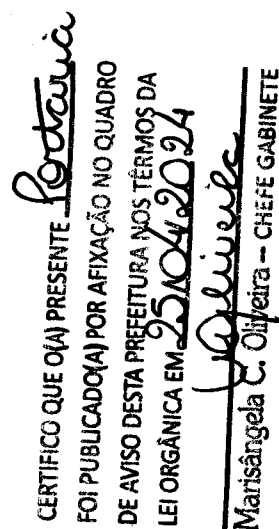 CERTIFICO QUE O(A) PRESENTE Portaria
FOI PUBLICADO(A) POR AFIXAÇÃO NO QUADRO
DE AVISO DESTA PREFEITURA NOS TÊRMOS DA
LEI ORGÂNICA EM 25/04/2024
Maoliveira
Marisângela C. Oliveira – CHEFE GABINETE